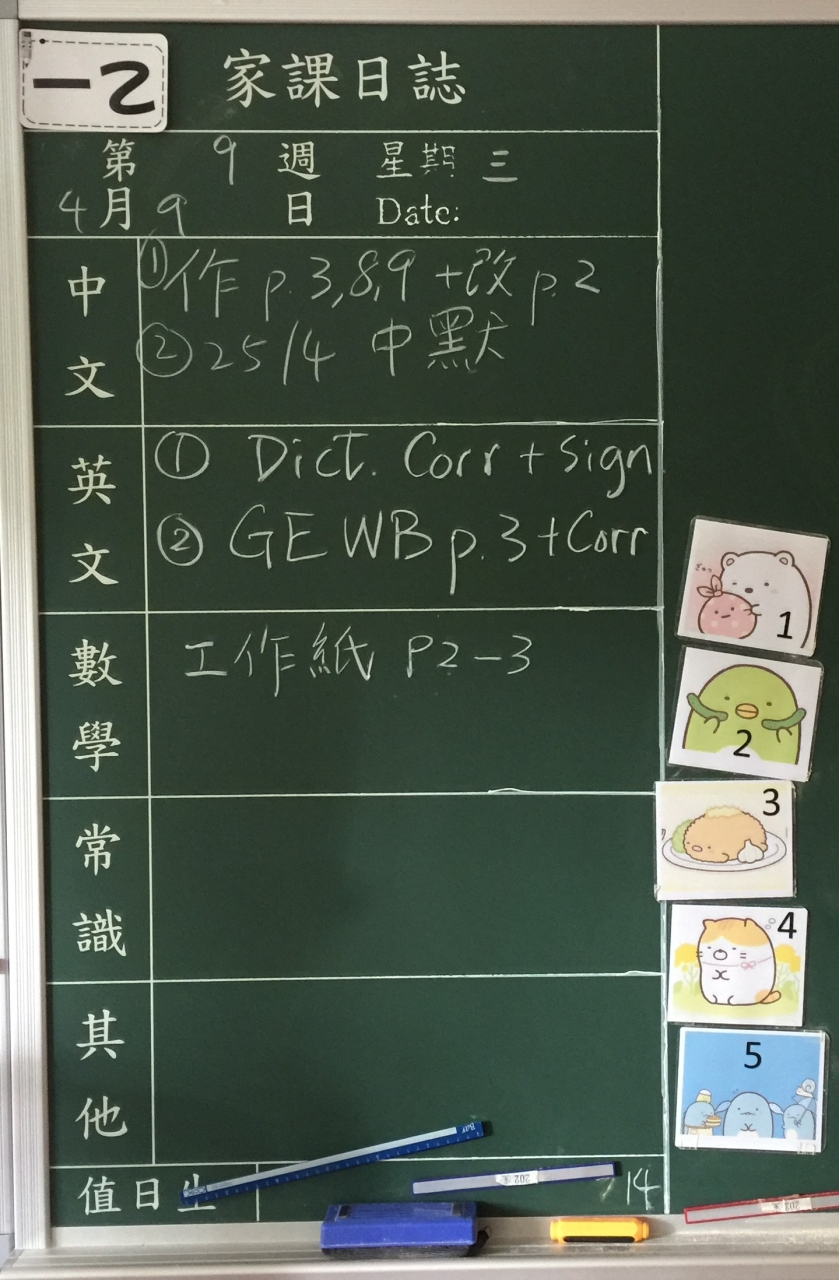 一乙
家課日誌
第 9 週 星期 三
4月9日 Date:
中文
①作 p.3,8,9 +改 p.2
②25/4 中默
英文
① Dict. Corr + Sign
② GE WB p.3 + Corr
數學
工作紙 P2-3
常識
其他
值日生
14
1
2
3
4
5